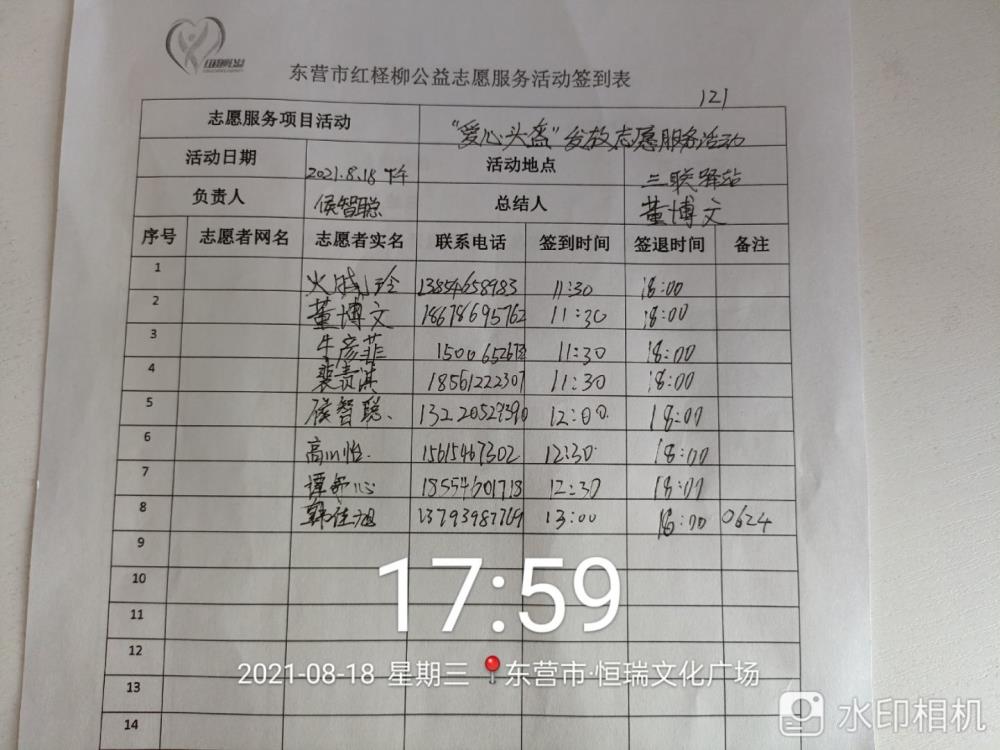 东营市红柽柳公益志愿服务活动签到表
121
志愿服务项目活动 "爱心头盔"发放志愿服务活动
活动日期 2021.8.18 下午 活动地点 三联驿站
负责人 侯智聪 总结人 董博文
序号 志愿者网名 志愿者实名 联系电话 签到时间 签退时间 备注
1 13854658983 11:30 18:00
2 董博文 18678695762 11:30 18:00
3 牛彦菲 11:30 18:00
4 18561222307 11:30 18:00
5 侯智聪、 13220527390 12:00 18:00
6 高川怡. 15615467302 12:30 18:00
7 谭舒心 18554601718 12:30 18:00
8 韩佳旭 13793987769 13:00 18:00 0624
9
10
11
12
13
14
17:59
2021-08-18 星期三 东营市·恒瑞文化广场
水印相机